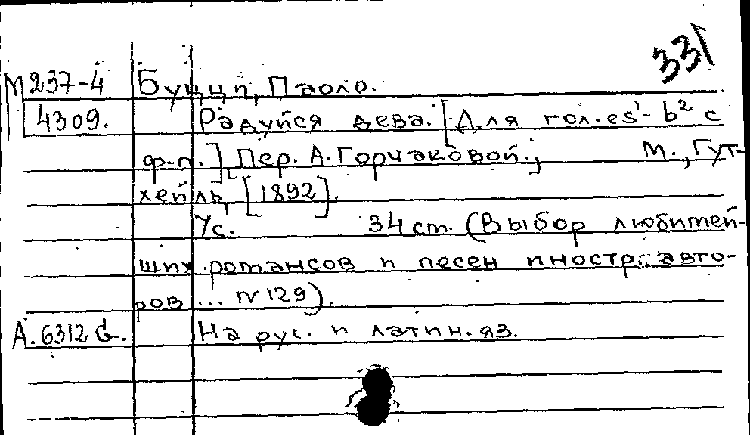 331
М 237-4 Буцци, Паоло.
4309. Радуйся дева. [Для гол. es¹- b² с
ф-п.] [Пер. А. Горчаковой.; М., Гут-
хейль, [1892].
7с. 34 ст. (Выбор любимей-
ших романсов и песен иностр. авто-
ров ... N 129).
А. 6312 б. На рус. и латин. яз.